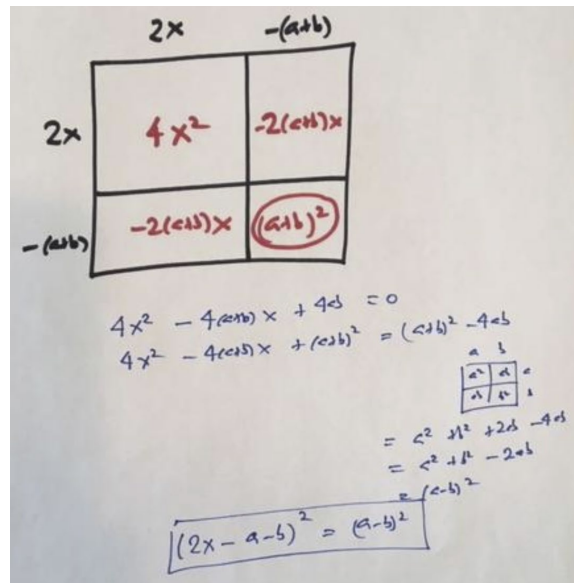 2x -(a+b)
2x 4x² -2(a+b)x
-(a+b) -2(a+b)x (a+b)²
4x² - 4(a+b)x + 4ab = 0
4x² - 4(a+b)x + (a+b)² = (a+b)² - 4ab
a b
a² ab a
ab b² b
= a² + b² + 2ab - 4ab
= a² + b² - 2ab
= (a-b)²
(2x - a - b)² = (a-b)²